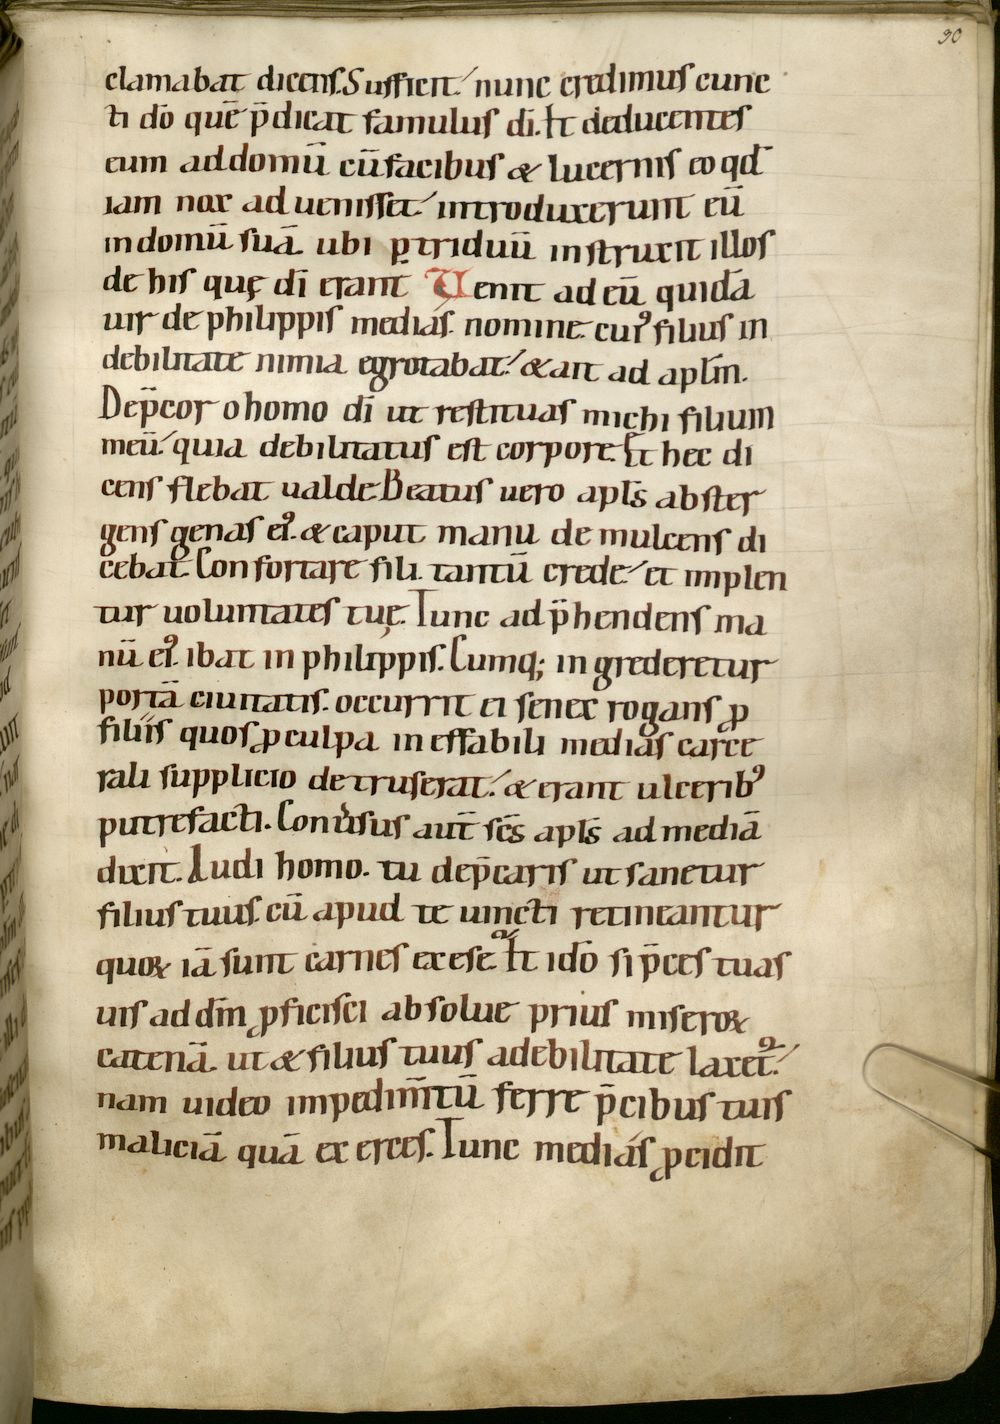 90
clamabat dicens. Sufficit. nunc credimus cunc
ti dō quē p̄dicat famulus dī. Et deducentes
eum ad domū cū facibus & lucernis eo qd̄
iam nox aduenisset. introduxerunt eū
in domū suā. ubi ꝑ triduū instruxit illos
de his quę dī erant Uenit ad eū quidā
uir de philippis medias. nomine. cuiꝰ filius in
debilitate nimia egrotabat. & ait ad apl̄m.
Dep̄cor o homo dī ut restituas michi filium
meū. quia debilitatus est corpore. Et hec di
cens flebat ualde. Beatus uero apl̄s abster
gens genas eiꝰ. & caput manu demulcens di
cebat. Confortare fili. tantū crede. et implen
tur uoluntates tuę. Tunc adp̄hendens ma
nū eiꝰ. ibat in philippis. Cumq; ingrederetur
portā ciuitatis. occurrit ei senex rogans ꝓ
filiis quos ꝓ culpa ineffabili medias carce
rali supplicio detruserat. & erant ulceribꝰ
putrefacti. Conu̾sus aut̄ sc̄s apl̄s ad mediā
dixit. Audi homo. tu dep̄caris ut sanetur
filius tuus. cū apud te uincti retineantur
quoꝝ iā sunt carnes exesę. Et idō si p̄ces tuas
uis ad dn̄m ꝓficisci absolue prius miseroꝝ
catenā. ut & filius tuus a debilitate laxetꝰ.
nam uideo impedim̄tū ferre p̄cibus tuis
maliciā quā exerces. Tunc medias ꝓcidit